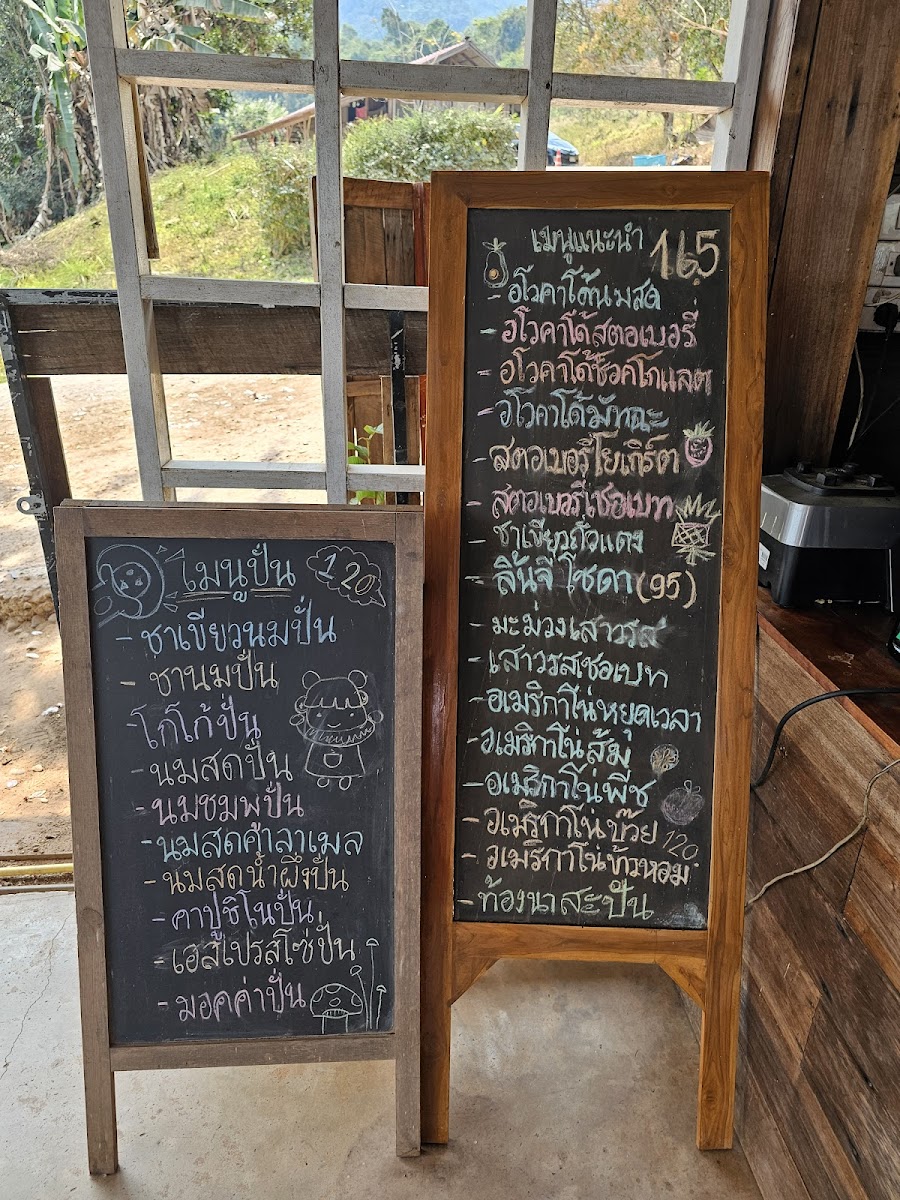 เมนูปั่น 120
- ชาเขียวนมปั่น
- ชานมปั่น
- โกโก้ปั่น
- นมสดปั่น
- นมชมพูปั่น
- นมสดคาลาเมล
- นมสดน้ำผึ้งปั่น
- คาปูชิโนปั่น
- เอสเปรสโซ่ปั่น
- มอคค่าปั่น
เมนูแนะนำ 165
- อโวคาโด้นมสด
- อโวคาโด้สตอเบอรี่
- อโวคาโด้ช็อคโกแลต
- อโวคาโด้มัทฉะ
- สตอเบอรี่โยเกิร์ต
- สตอเบอรี่เชอเบท
- ชาเขียวถั่วแดง
- ลิ้นจี่ โซดา (95)
- มะม่วงเสาวรส
- เสาวรสเชอเบท
- อเมริกาโน่หยุดเวลา
- อเมริกาโน่ส้ม
- อเมริกาโน่พีช
- อเมริกาโน่บ๊วย 120
- อเมริกาโน่ข้าวหอม
- ท้องนาสะปัน